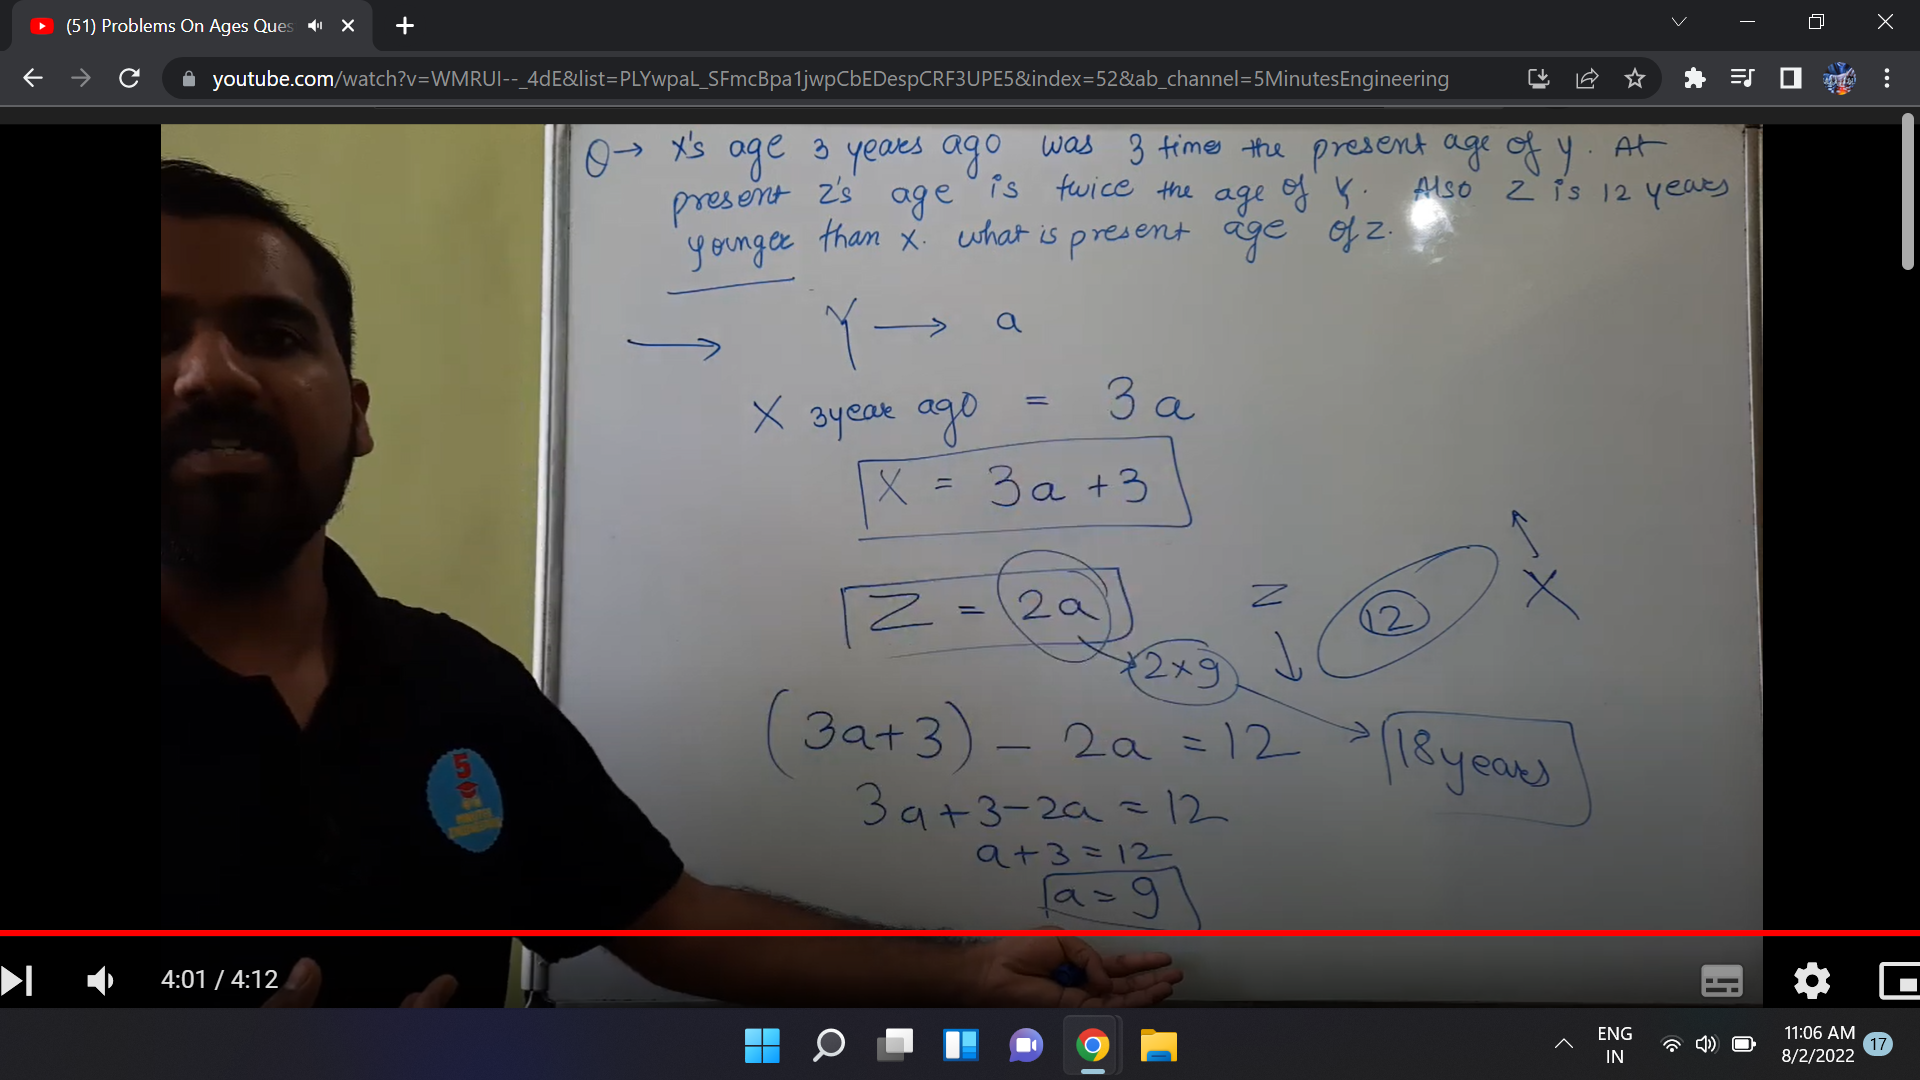 (51) Problems On Ages Ques
youtube.com/watch?v=WMRUI--_4dE&list=PLYwpaL_SFmcBpa1jwpCbEDespCRF3UPE5&index=52&ab_channel=5MinutesEngineering
Q→ X's age 3 years ago was 3 times the present age of y. At
present Z's age is twice the age of Y. Also Z is 12 years
younger than X. what is present age of z.
→ Y → a
X 3year ago = 3a
X = 3a + 3
Z = 2a
Z 12 X
2×9
(3a+3) - 2a = 12
18years
3a+3-2a = 12
a+3=12
a = 9
5
4:01 / 4:12
ENG
IN
11:06 AM
8/2/2022
17